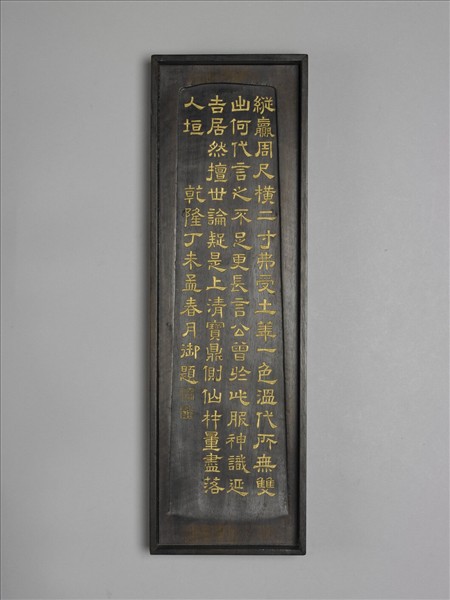 縱贏周尺橫二寸弗受土華一色溫代所無雙
出何代言之不足更長言公曾於此服神識延
吉居然擅世論疑是上清寶鼎側仙杵量盡落
人垣　乾隆丁未孟春月御題